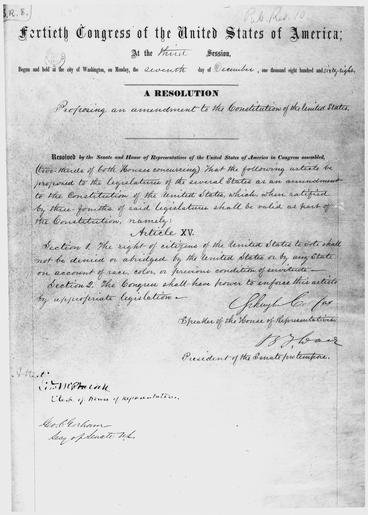 R. 8.
Pub. Res. 10
Fortieth Congress of the United States of America;
At the third Session,
Begun and held at the city of Washington, on Monday, the seventh day of December, one thousand eight hundred and sixty-eight.
A RESOLUTION
Proposing an amendment to the Constitution of the United States.
Resolved by the Senate and House of Representatives of the United States of America in Congress assembled,
(two-thirds of both Houses concurring) That the following article be
proposed to the legislatures of the several States as an amendment
to the Constitution of the United States, which, when ratified
by three fourths of said legislatures shall be valid as part of
the Constitution, namely:
Article XV.
Section 1. The right of citizens of the United States to vote shall
not be denied or abridged by the United States or by any State
on account of race, color, or previous condition of servitude—
Section 2. The Congress shall have power to enforce this article
by appropriate legislation—
Schuyler Colfax
Speaker of the House of Representatives.
B F Wade
President of the Senate pro tempore.
Attest:
Clerk of House of Representatives.
Geo. C. Gorham
Secy of Senate U.S.